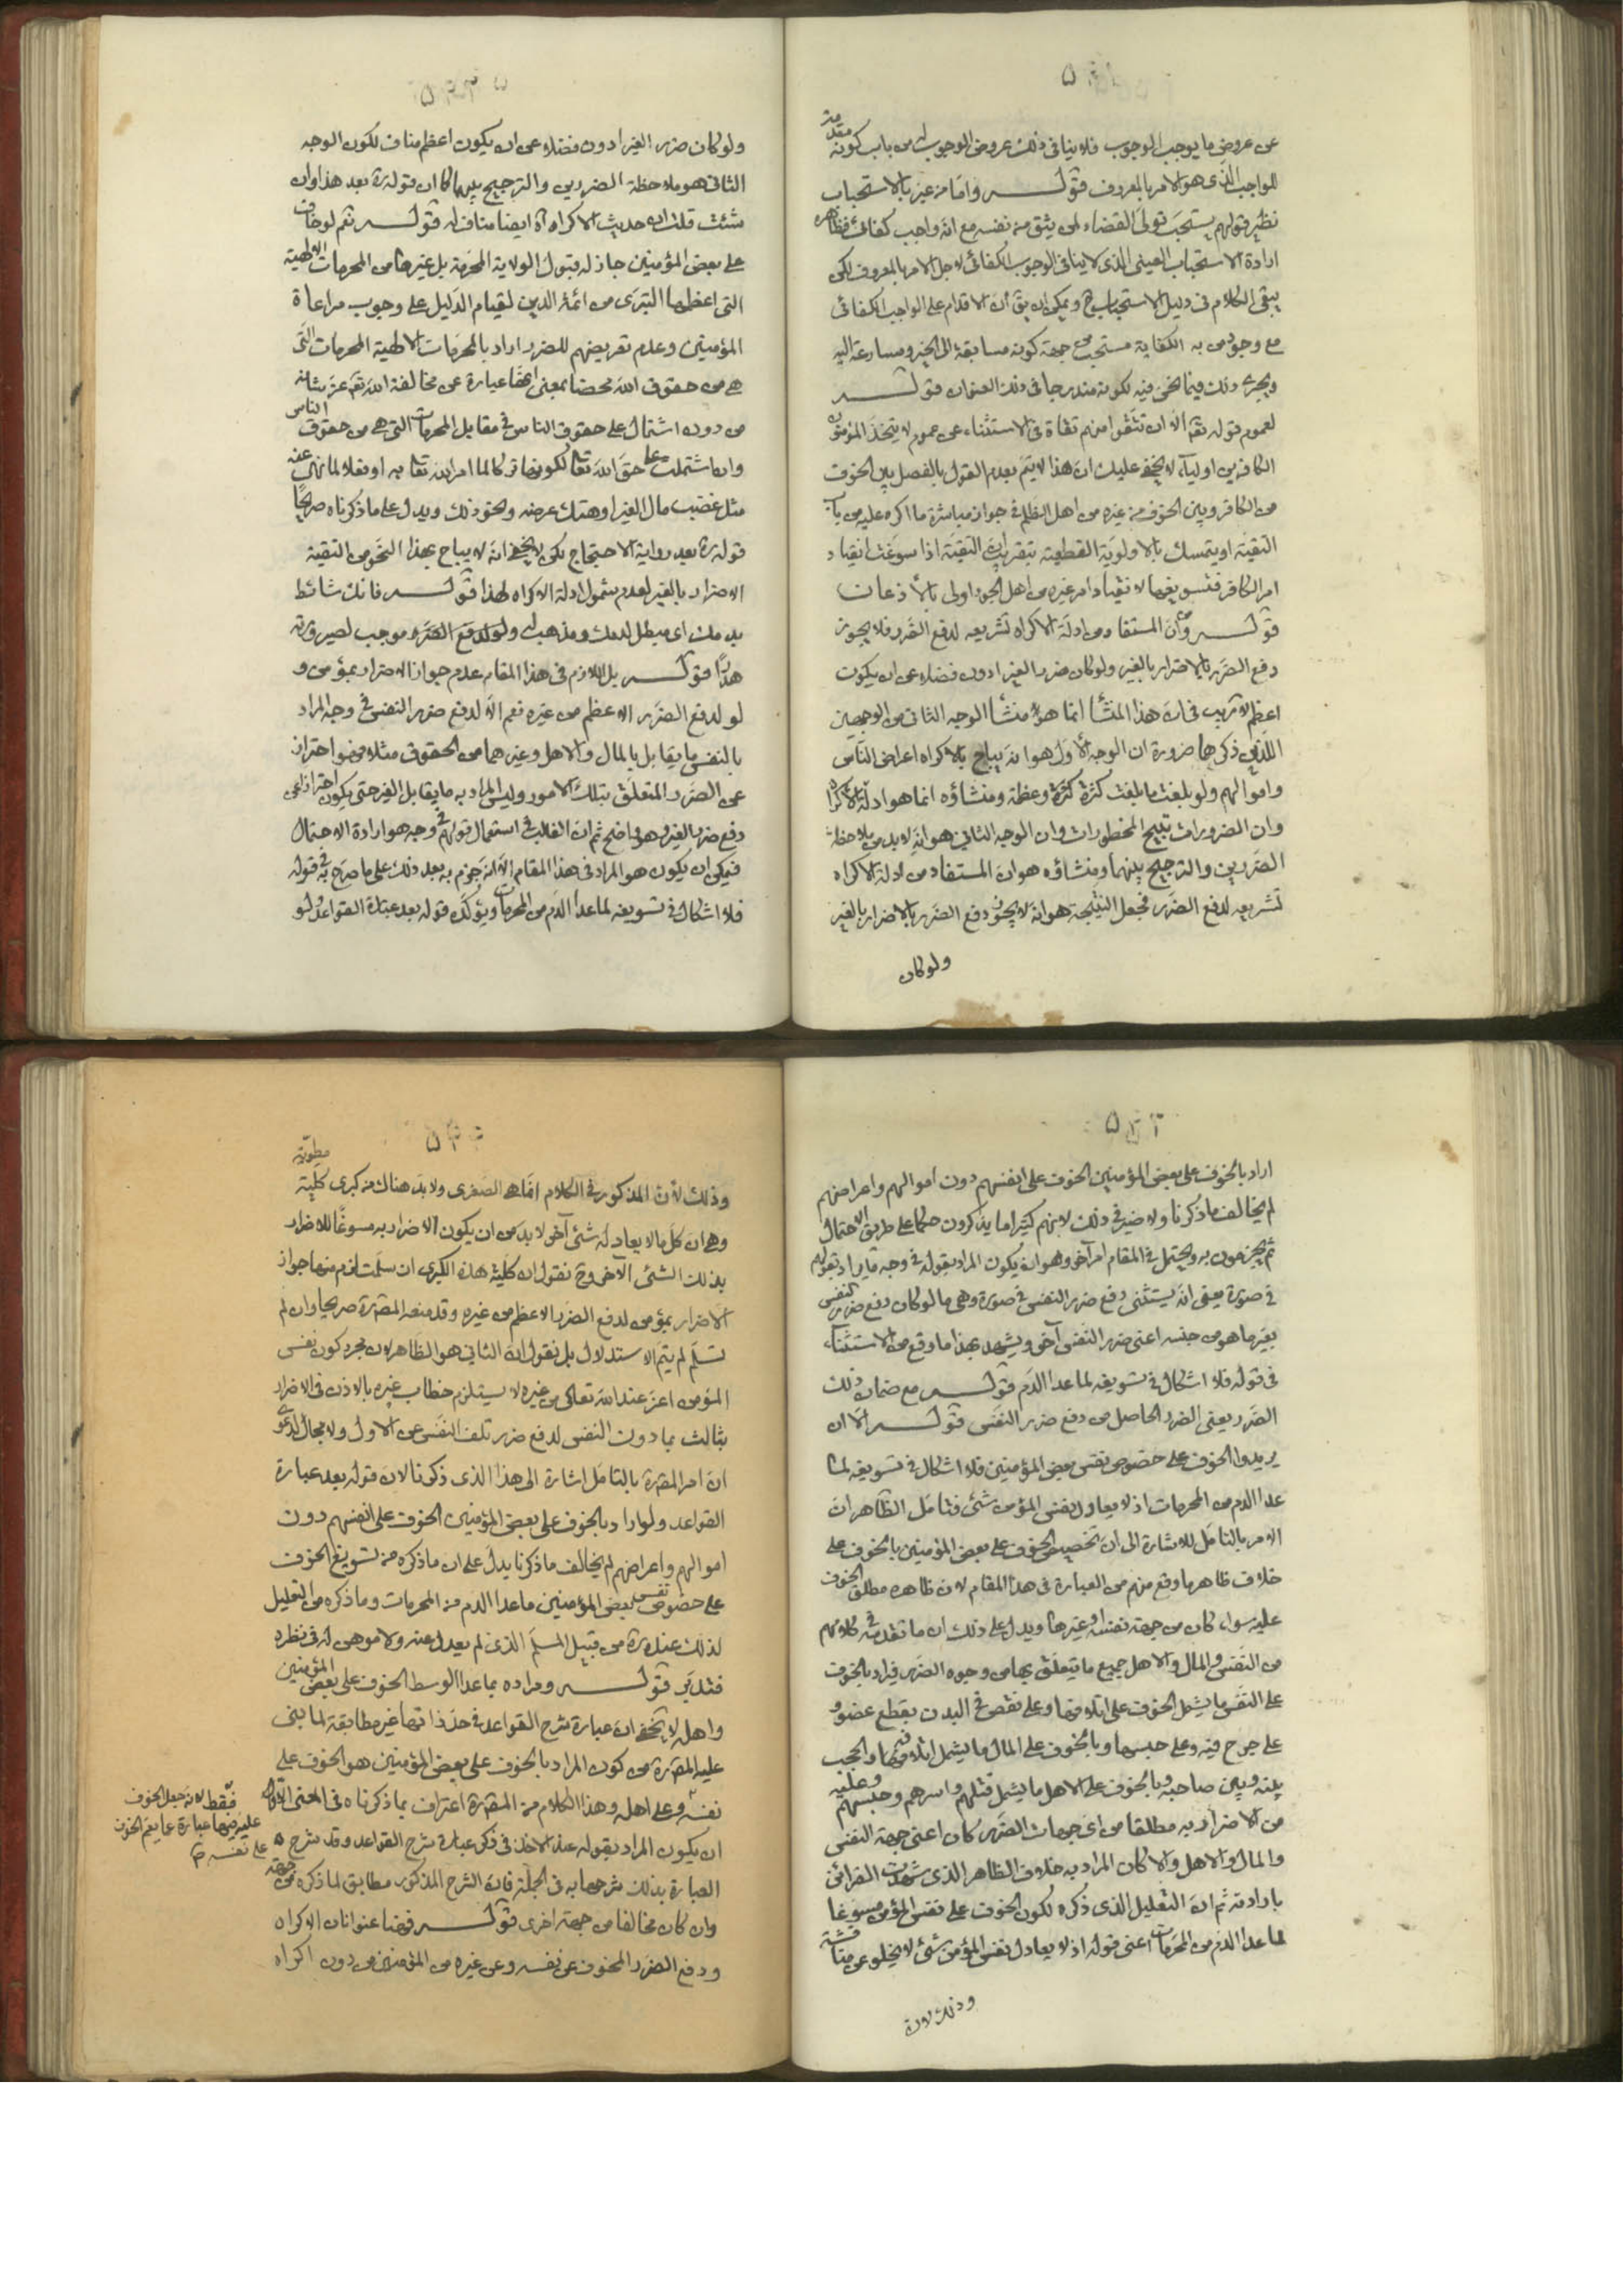 عن عروض ما يوجب الوجوب فلا ينافى ذلك عروض الوجوب له من باب كونه مقدمة
للواجب الذى هو الامر بالمعروف قوله وامّا من عبّر بالاستحباب
نظير قولهم يستحبّ تولّى القضاء لمن يثق من نفسه مع انّه واجب كفائى فظاهره
ارادة الاستحباب العينى الذى لا ينافى الوجوب الكفائى لاجل الامر بالمعروف لكن
يبقى الكلام فى دليل الاستحباب ح ويمكن ان يق انّ الاقدام على الواجب الكفائى
مع وجود من به الكفاية مستحب من جهة كونه مسابقة الى الخير ومسارعة اليه
ويجرى ذلك فيما نحن فيه لكونه مندرجا فى ذلك العنوان قوله
لعموم قوله تعم الّا ان تتّقوا منهم تقاة فى الاستثناء عن عموم لا يتخذ المؤمنون
الكافرين اولياء لا يخفى عليك انّ هذا لا يتمّ بعدم القول بالفصل بين الخوف
من الكافر وبين الخوف من غيره من اهل الظلم فى جواز مباشرة ما اكره عليه من باب
التقيّة او يتمسك بالاولويّة القطعية بتقريب انّ التقيّة اذا سوّغت انقياد
امر الكافر فتسويغها لانقياد امر غيره من اهل الجور اولى بالأذعان
قوله وانّ المستفاد من ادلّة الاكراه تشريعه لدفع الضّرر فلا يجوز
دفع الضّرر بالاضرار بالغير ولو كان ضرر الغير ادون فضلا عن ان يكون
اعظم لا ريب فى ان هذا المنشأ انّما هو منشأ الوجه الثانى من الوجهين
اللّذين ذكرهما ضرورة ان الوجه الأوّل هو انّه يباح بالاكراه اعراض النّاس
واموالهم ولو بلغت ما بلغت كثرة وعظمة ومنشاؤه انما هو ادلّة الاكراه
وان الضرورات تبيح المحظورات وان الوجه الثانى هو انّه لا بد من ملاحظة
الضّررين والترجيح بينهما ومنشاؤه هو ان المستفاد من ادلة الاكراه
تشريعه لدفع الضّرر فجعل النّتيجة هو انّه لا يجوز دفع الضّرر بالاضرار بالغير
ولو كان
ولو كان ضرر الغير ادون فضلا عن ان يكون اعظم مناف لكون الوجه
الثانى هو ملاحظة الضررين والترجيح بينهما كما ان قوله ره بعد هذا وان
شئت قلت ان حديث الاكراه آه ايضا مناف له قوله نعم لو خاف
على بعض المؤمنين جاز له قبول الولاية المحرّمة بل غيرها من المحرمات الالهية
التى اعظمها التبرّى من ائمة الدين لقيام الدّليل على وجوب مراعاة
المؤمنين وعدم تعريضهم للضرر اراد بالمحرّمات الالهية المحرمات الّتى
هى من حقوق اللّه محضا بمعنى انّها عبارة عن مخالفة اللّه تعم عزّ شانه
من دون اشتمال على حقوق الناس فى مقابل المحرمات التى هى من حقوق الناس
وان اشتملت على حق اللّه تعم لكونها تركا لما امر اللّه تعم به او فعلا لما نهى عنه
مثل غصب مال الغير او هتك عرضه ونحو ذلك ويدل على ما ذكرناه صريحا
قوله ره بعد رواية الاحتجاج لكن لا يخفى انّه لا يباح بهذا النّحو من التقية
الاضرار بالغير لعدم شمول ادلة الاكراه لهذا قوله فانّك شائط
بدمك اى مبطل لدمك ومذهب له ولو لدفع الضّرر موجب لصيرورته
هدرا قوله بل اللازم فى هذا المقام عدم جواز الاضرار بمؤمن و
لو لدفع الضّرر الاعظم من غيره نعم الّا لدفع ضرر النفس فى وجه المراد
بالنفس ما يقابل بالمال والاهل وغيرهما من الحقوق مثلا فهو احتراز
عن الضرر المتعلّق بتلك الامور وليس المراد به ما يقابل الغير حتى يكون احترازا عن
دفع ضرر الغير وهو واضح ثم انّ الغالب فى استعمال قولهم فى وجه هو ارادة الاحتمال
فيمكن ان يكون هو المراد فى هذا المقام الّا انّه جزم به بعد ذلك على ما صرّح به فى قوله
فلا اشكال فى تسويغه لما عدا الدّم من المحرمات ويؤكّد قوله بعد عبارة القواعد ولو
اراد بالخوف على بعض المؤمنين الخوف على انفسهم دون اموالهم واعراضهم
لم يخالف ما ذكرنا ولا ضير فى ذلك لانهم كثيرا ما يذكرون حكما على طريق الاحتمال
ثم يجزمون به ويحتمل فى المقام امر آخر وهو ان يكون المراد بقوله فى وجه ما يراد بقوله
فى صورة يعنى انّه يستثنى دفع ضرر النفس فى صورة وهى ما لو كان دفع ضرر النفس
بغير ما هو من جنسه اعنى ضرر النّفس آخر ويشهد بهذا ما وقع من الاستثناء
فى قوله فلا اشكال فى تسويغه لما عدا الدّم قوله مع ضمان ذلك
الضّرر يعنى الضرر الحاصل من دفع ضرر النفس قوله الّا ان
يريدوا الخوف على خصوص نفس بعض المؤمنين فلا اشكال فى تسويغه لما
عدا الدم من المحرمات اذ لا يعادل نفس المؤمن شئ فتامّل الظّاهر انّ
الامر بالتامّل للاشارة الى انّ تخصيص الخوف على بعض المؤمنين بالخوف على
خلاف ظاهر ما وقع منهم من العبارة فى هذا المقام لانّ ظاهره مطلق الخوف
عليه سواء كان من جهة نفسه او غيرها ويدل على ذلك ان ما تقدم فى كلامهم
من النّفس والمال والاهل جميع ما يتعلّق بها من وجوه الضّرر فيراد بالخوف
على النّفس ما يشمل الخوف على اتلافها وعلى نقص فى البدن بقطع عضو و
على جرح فيه وعلى حبسها وبالخوف على المال ما يشمل اتلافها والحجب
بينه وبين صاحبه وبالخوف على الاهل ما يشمل قتلهم واسرهم وحبسهم وعليه
من الاضرار به مطلقا من اى جهات الضّرر كان اعنى جهة النفس
والمال والاهل والا كان المراد به خلاف الظاهر الذى شهدت القرائن
بارادته ثم انّ التعليل الذى ذكره لكون الخوف على نفس المؤمن مسوّغا
لما عدا الدّم من المحرّمات اعنى قوله اذ لا يعادل نفس المؤمن شئ لا يخلو عن مناقشة
وذلك لانّ
وذلك لانّ المذكور فى الكلام انّما هى الصغرى ولا بدّ هناك من كبرى كليّة مطويّة
وهى ان كلّ ما لا يعادله شئ آخر لا بد من ان يكون الاضرار به مسوّغا للاضرار
بذلك الشئ الآخر وح نقول ان كليّة هذه الكبرى ان سلّمت لزم منها جواز
الاضرار بمؤمن لدفع الضّرر الاعظم من غيره وقد منعه المصّ ره صريحا وان لم
تسلّم لم يتمّ الاستدلال بل نقول انّ الثانى هو الظّاهر لان مجرد كون نفس
المؤمن اعزّ عند اللّه تعالى من غيره لا يستلزم خطاب غيره بالاذن فى الاضرار
بثالث بما دون النفس لدفع ضرر تلف النّفس عن الاول ولا مجال لدعوى
انّ امر المصّ ره بالتامّل اشارة الى هذا الذى ذكرنا لانّ قوله بعد عبارة
القواعد ولو اراد بالخوف على بعض المؤمنين الخوف على انفسهم دون
اموالهم واعراضهم لم يخالف ما ذكرنا يدلّ على ان ما ذكره من تسويغ الخوف
على خصوص نفس بعض المؤمنين ما عدا الدم من المحرمات وما ذكره من التعليل
لذلك عنده ره من قبيل المسلّم الذى لم يعدل عنه ولا موهن له فى نظره
فتدبّر قوله ومراده بما عدا الوسط الخوف على بعض المؤمنين
واهله لا يخفى انّ عبارة شرح القواعد فى حدّ ذاتها غير مطابقة لما بنى
عليه المصّ ره من كون المراد بالخوف على بعض المؤمنين هو الخوف على
نفسه وعلى اهله وهذا الكلام من المصّ ره اعتراف بما ذكرناه فى المعنى
ان يكون المراد بقوله عند الاخذ فى ذكر عبارة شرح القواعد وقد شرح
العبارة بذلك شرحها به فى الجملة فانّ الشرح المذكور مطابق لما ذكره من جهة
وان كان مخالفا من جهة اخرى قوله فهنا عنوانان الاكراه
ودفع الضّرر المخوف عن نفسه وعن غيره من المؤمنين من دون اكراه
فقط لانّه جعل الخوف
عليه فيها عبارة عمّا يعم الخوف
على نفسه